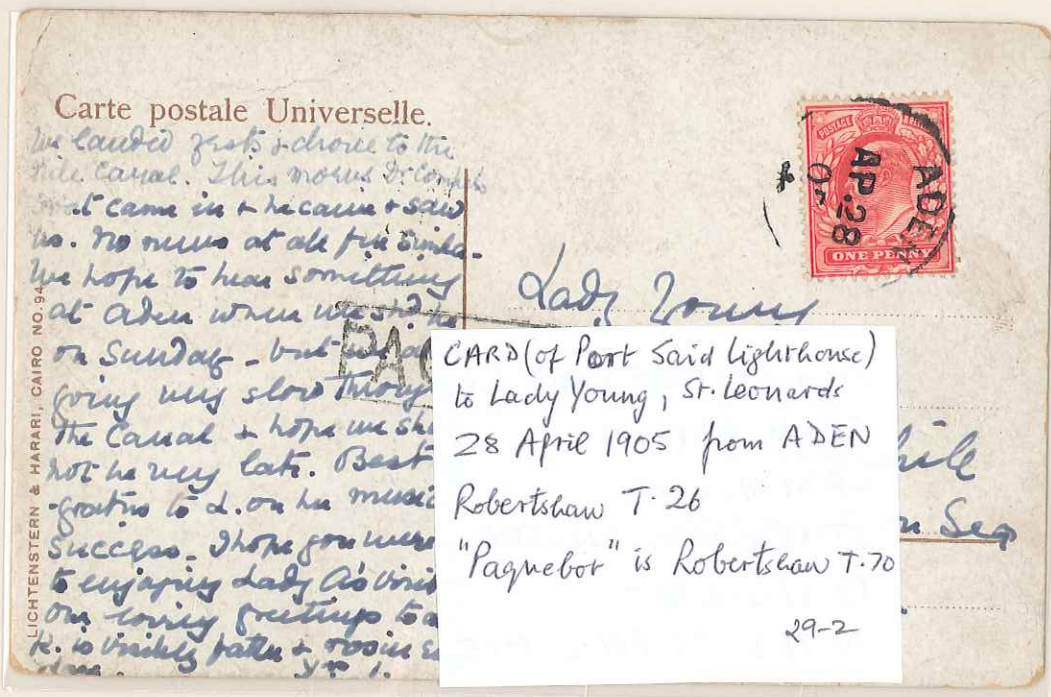 Carte postale Universelle.
We landed & drove to the
Canal. This morning Dr
came in & he came & saw
us. No news at all
We hope to hear something
at Aden when we
on Sunday - but we
going very slow through
the Canal & hope we
not be very late. Best
-grattns to L. on her music
Success. I hope you were
to enjoying Lady A's visit
our loving greetings to
K. is visibly fatter & rosier
LICHTENSTERN & HARARI, CAIRO NO. 94
POSTAGE
ONE PENNY
ADEN
AP. 28
05
Lady Young
PAQ
on Sea
CARD (of Port Said Lighthouse)
to Lady Young, St. Leonards
28 April 1905 from ADEN
Robertshaw T.26
"Paquebot" is Robertshaw T.70
29-2